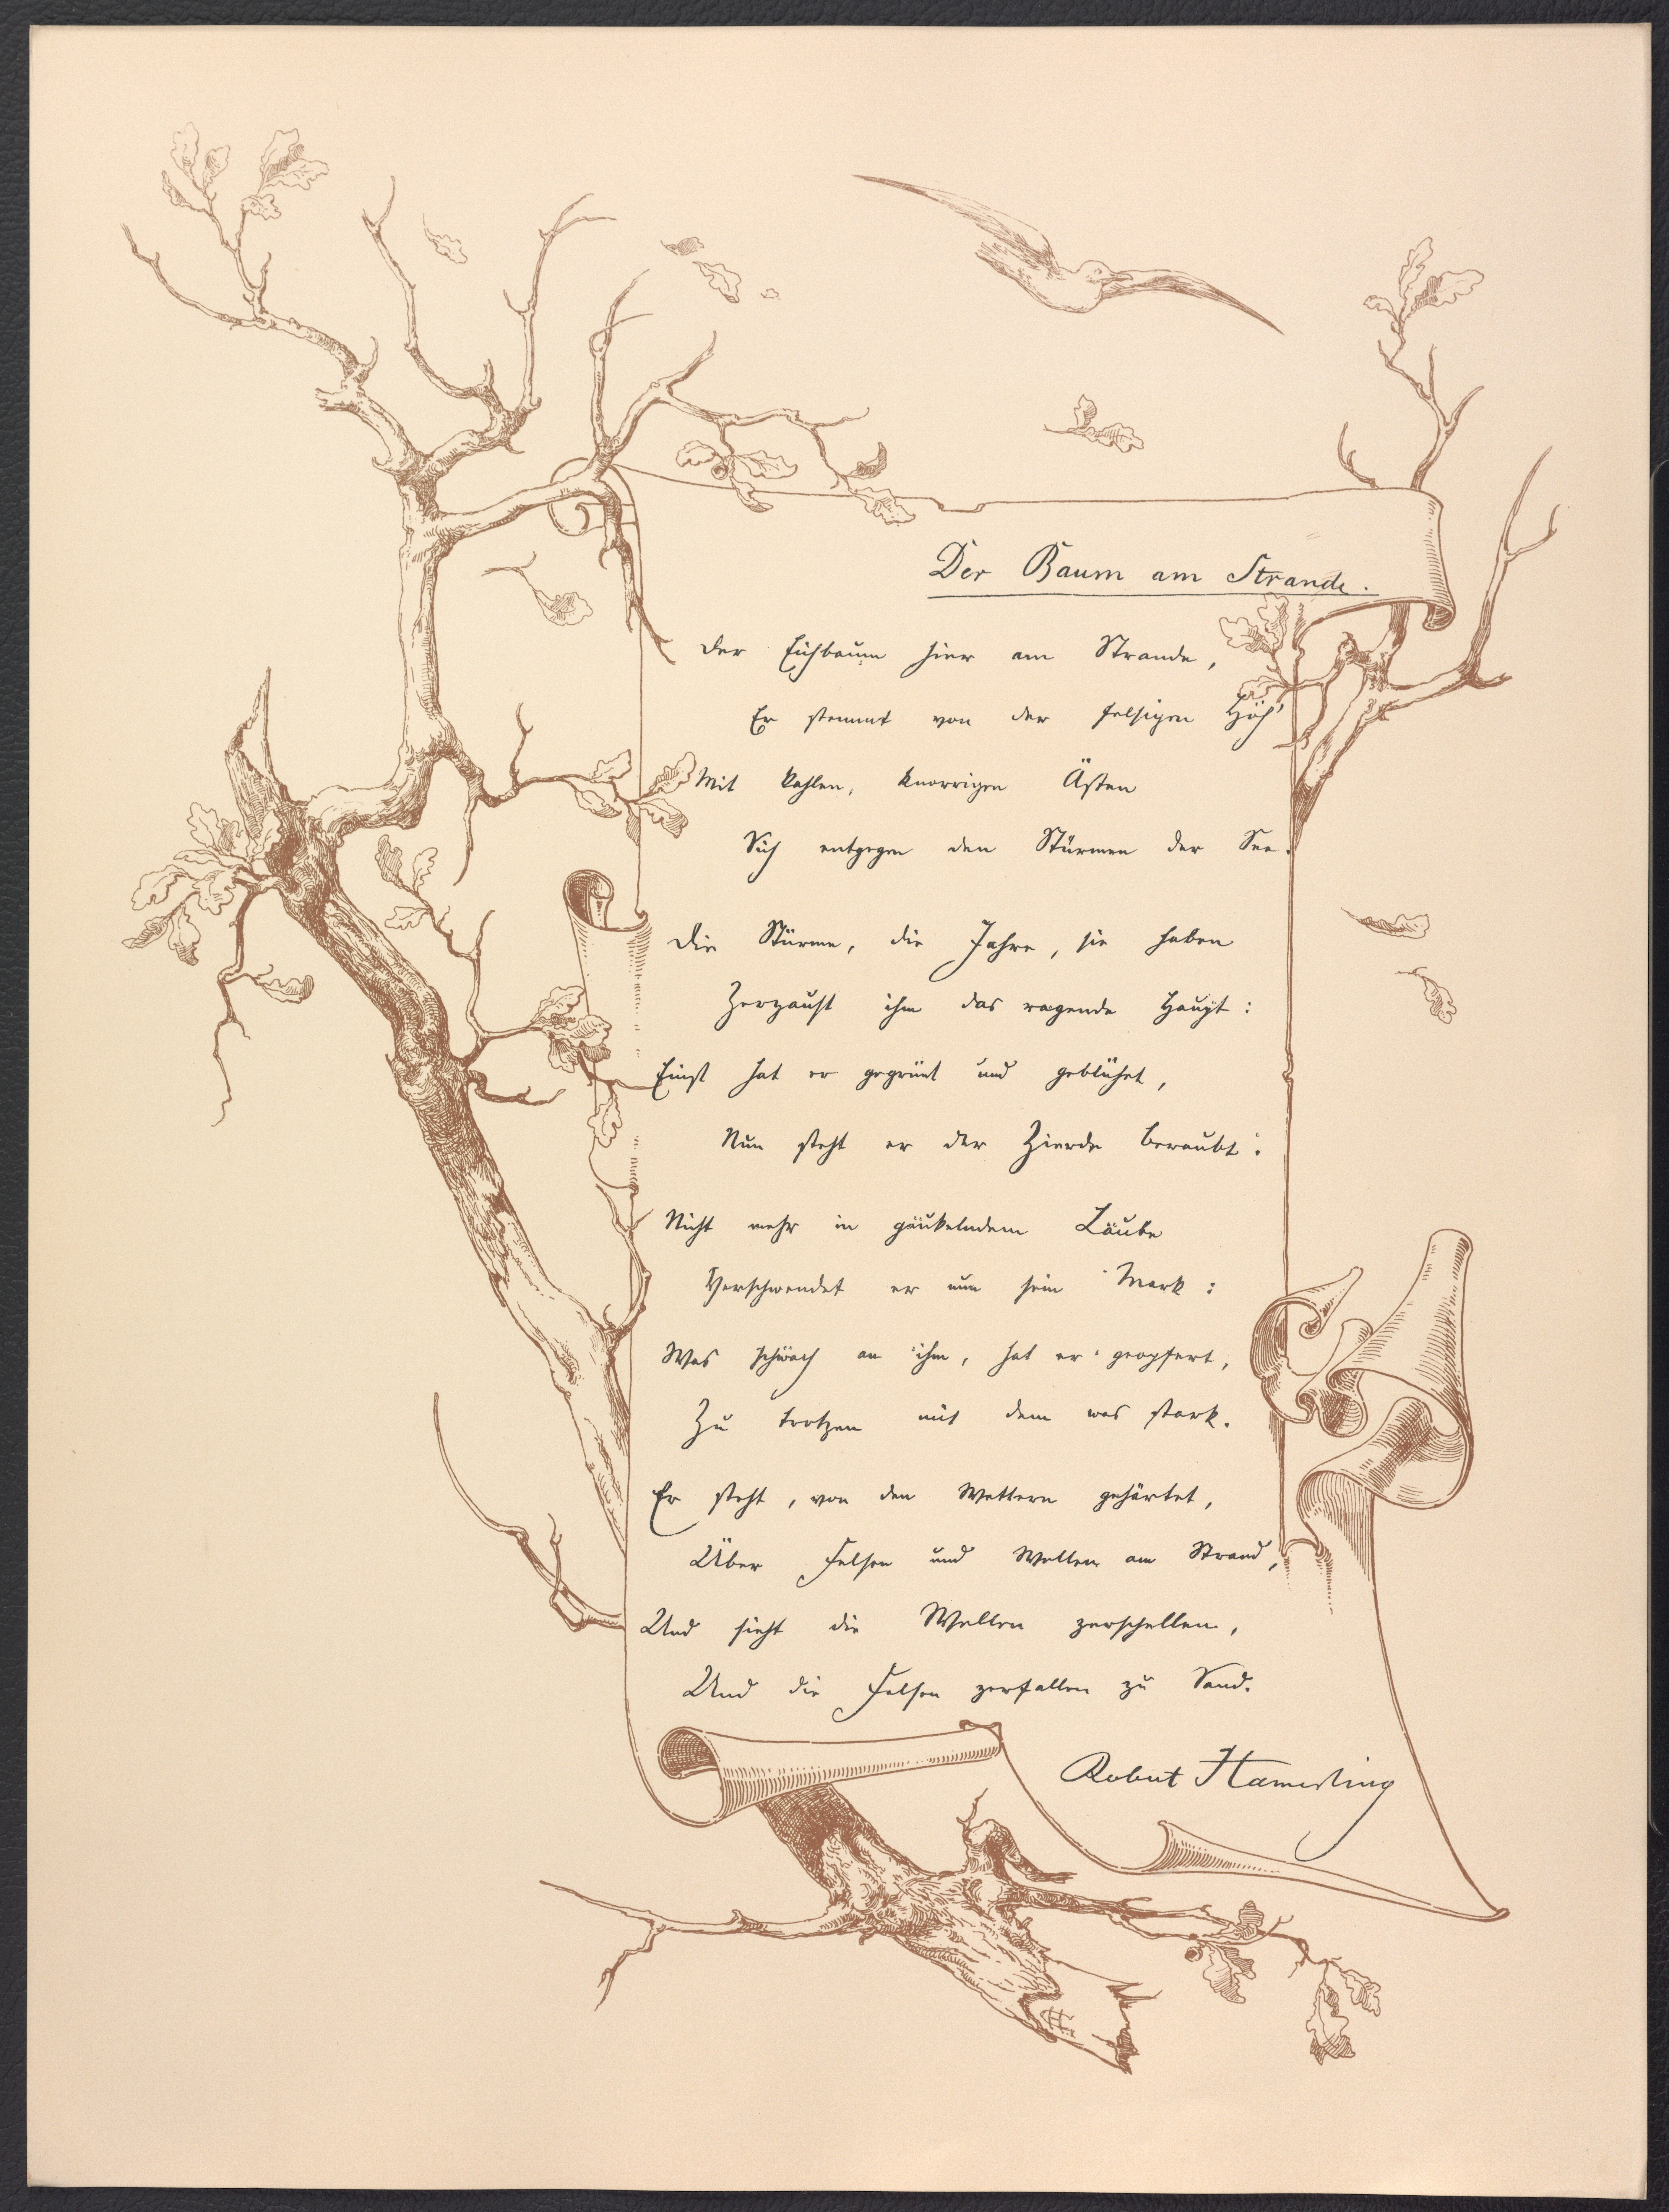 Der Baum am Strande.
Der Eichbaum hier am Strande,
Er stemmt von der felsigen Höh'
Mit kahlen, knorrigen Ästen
Sich entgegen den Stürmen der See.
Die Stürme, die Jahre, sie haben
Zerzaust ihm das ragende Haupt:
Einst hat er gegrünt und geblühet,
Nun steht er der Zierde beraubt:
Nicht mehr in gaukelndem Laube
Verschwendet er nun sein Mark:
Was schwach an ihm, hat er geopfert,
Zu trotzen mit dem was stark.
Er steht, von den Wettern gehärtet,
Über Felsen und Wellen am Strand,
Und sieht die Wellen zerschellen,
Und die Felsen zerfallen zu Sand.
Robert Hamerling